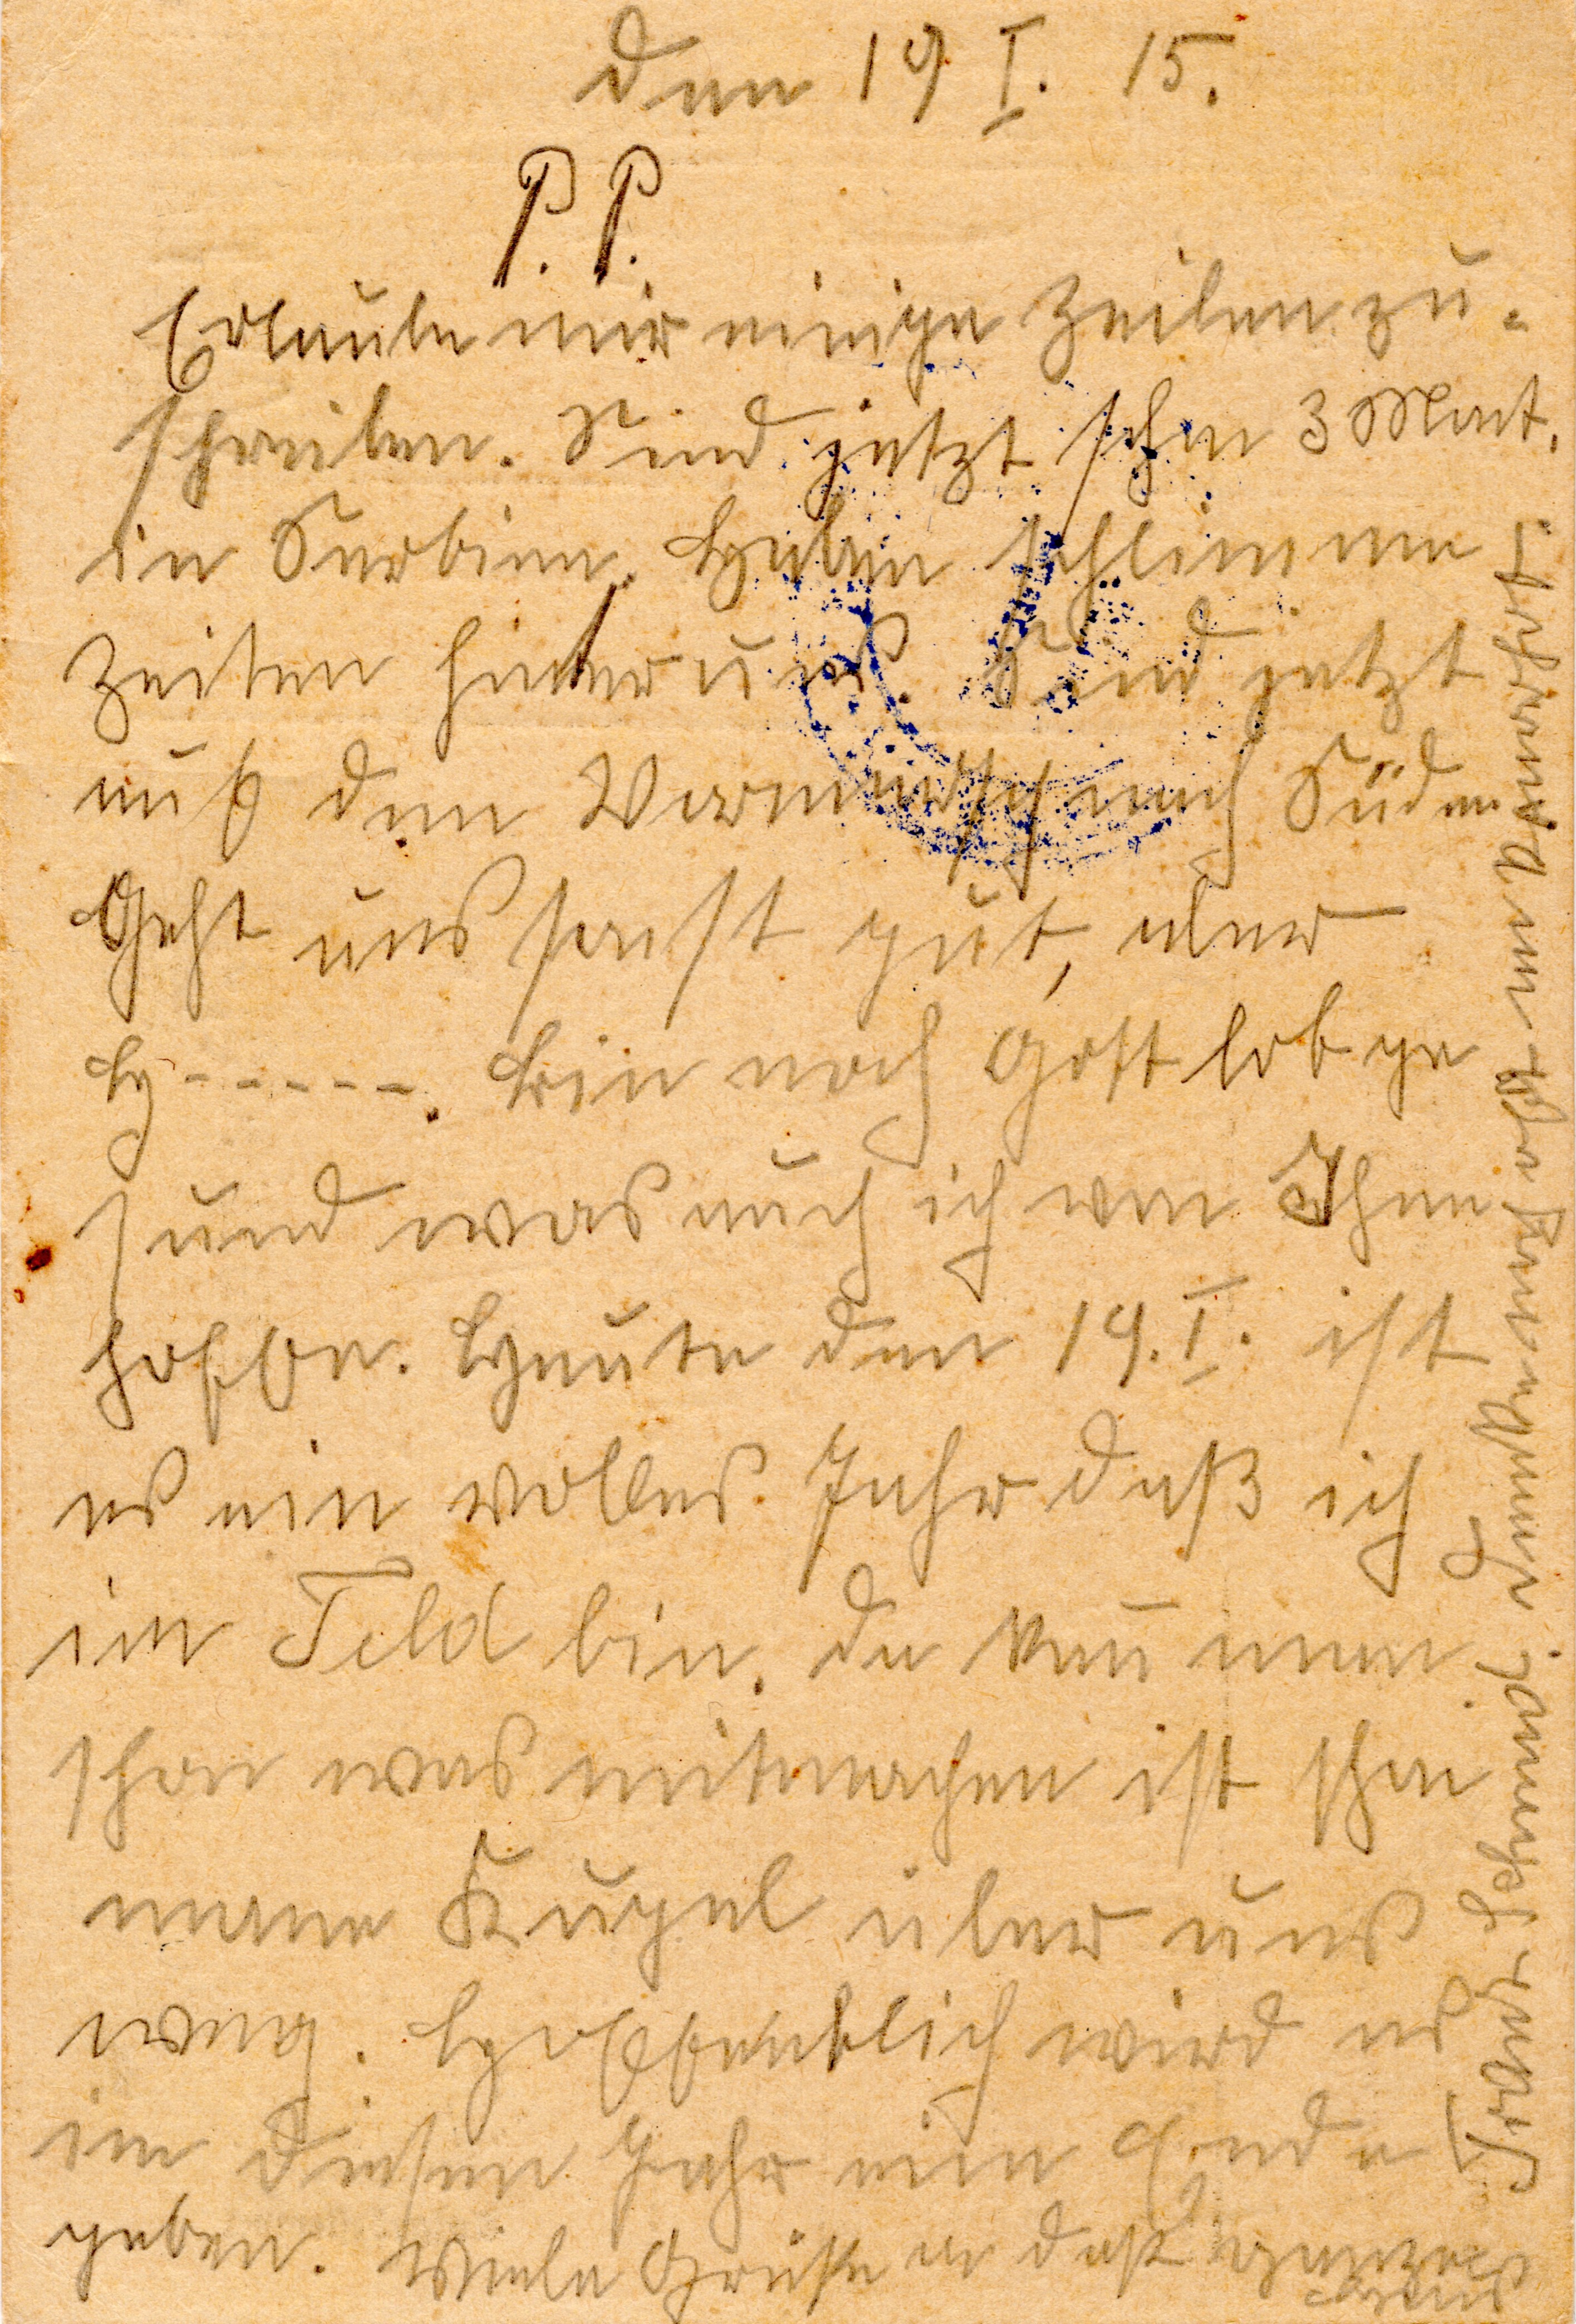 den 19 I. 15.
P. P.
Erlaube mir einige Zeilen zu-
schreiben. Sind jetzt schon 3 Mont.
in Serbien. Haben schlimme
Zeiten hinter uns. Sind jetzt
auf dem Vormarsch nach Süden
Geht uns sonst gut, aber
H------. Bin noch Gott lob ge
sund was auch ich von Ihnen
hoffe. Heute den 19. I. ist
es ein volles Jahr daß ich
im Feld bin. Da kan̄ man
schon was mitmachen ist schon
mane Kugel über uns
weg. Hoffentlich wird es
in diesen Jahr ein Ende
geben. Viele Grüße an daß ganze
Haus